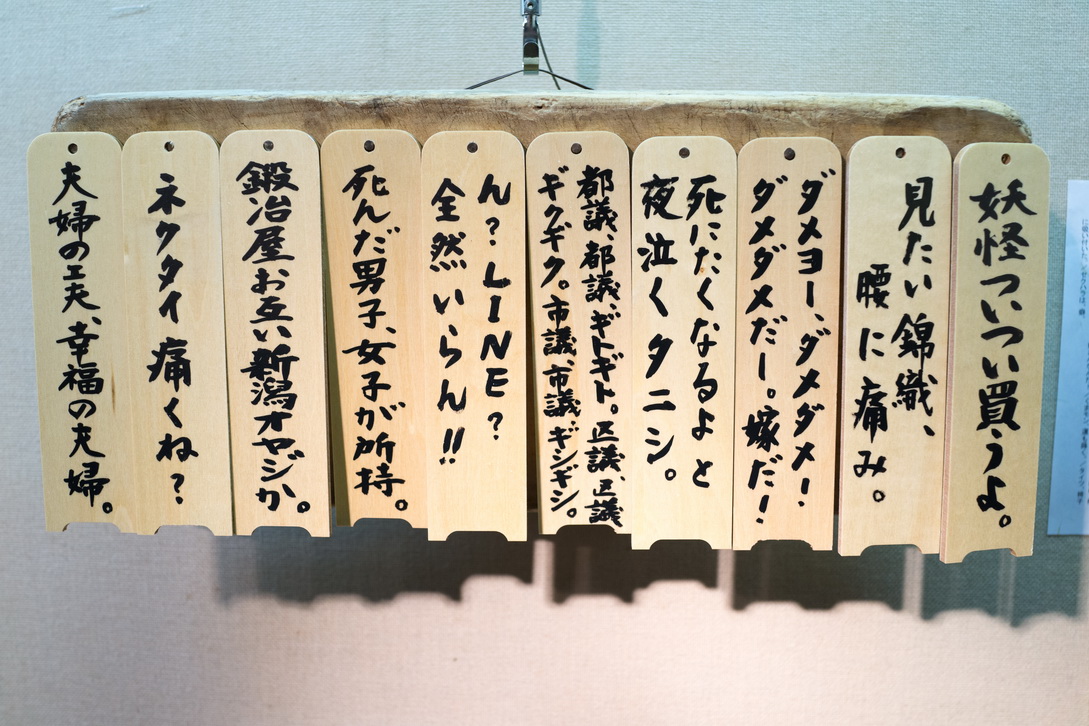 妖怪ついつい買うよ。
見たい錦織、
腰に痛み。
ダメヨー、ダメダメ！
ダメダメだー。嫁だ！
死にたくなるよと
夜泣くタニシ。
都議、都議、ギトギト。区議、区議
ギクギク。市議、市議、ギシギシ。
ん？LINE？
全然いらん!!
死んだ男子、女子が所持。
鍛冶屋お互い新潟オヤジか。
ネクタイ痛くね？
夫婦の工夫、幸福の夫婦。